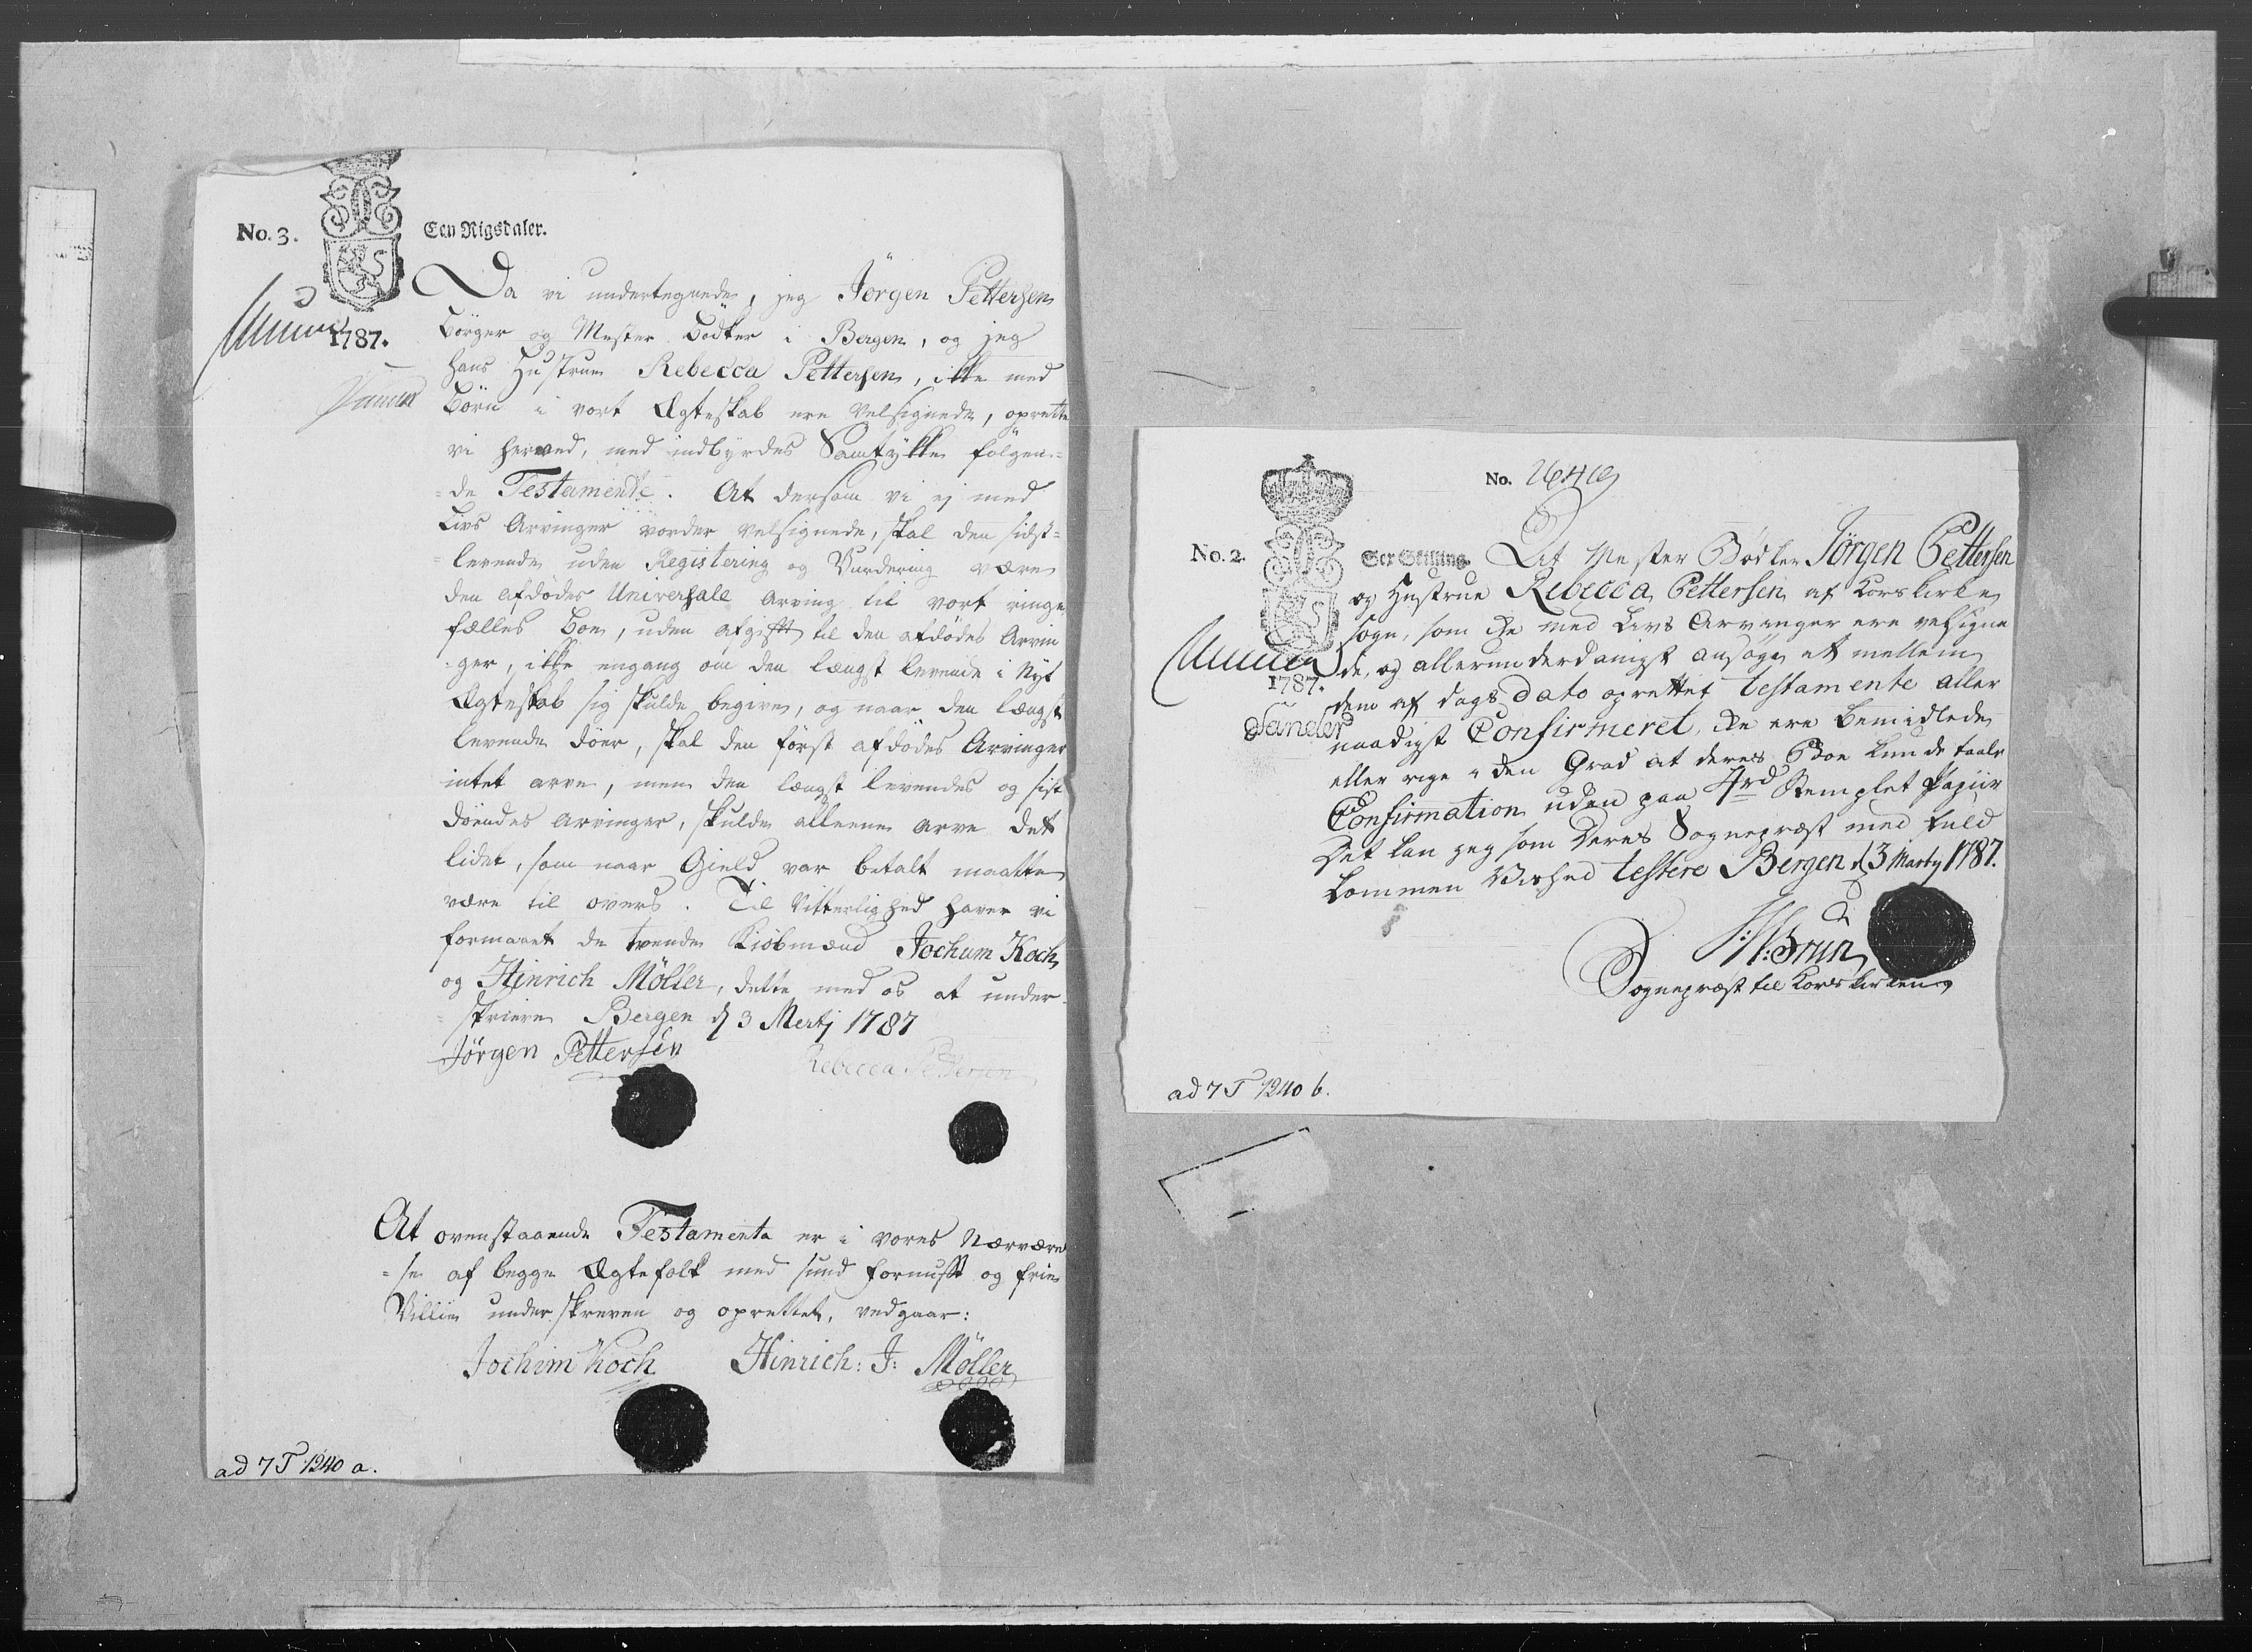 No. 3.
Een Rigsdaler.
1787.
Da vi undertegnede, jeg Jörgen Pettersen
Börger og Mester Bödker i Bergen, og jeg
hans Hustrue Rebecca Pettersen, ikke med
Börn i vort Ægteskab ere velsignede, oprette
vi herved, med indbyrdes Samtykke fölgen=
=de Testamente. At dersom vi ej med
Livs Arvinger vorder velsignede, skal den sidst=
=levende uden Registering og Vurdering være
den afdödes Universale Arving til vort ringe
fælles Boe, uden afgift til den afdödes Arvin
=ger, ikke engang om den længst levende i Nyt
Ægteskab sig skulde begive, og naar den længst
levende döer, skal den först afdödes Arvinger
intet arve, men den længst levendes og sist
döendes Arvinger, skulde alleene arve det
lidet, som naar Gield var betalt maatte
være til overs. Til Vitterlighed haver vi
formaaet de tvende Kiöbmænd Jochum Koch
og Hinrich Möller, dette med os at under=
=skrive Bergen d 3 Mertj 1787
Jörgen Pettersen
Rebecca Pettersen
At ovenstaaende Testamenta er i vores Nærværel
=se af begge Ægtefolk med sund fornuft og frie
Villie underskreven og oprettet, vedgaar:
Jochim Koch Hinrich: J: Möller
ad 7 T 1240 a.
No.
No. 2.
Sex Skilling.
1787.
At Mester Bödker Jörgen Pettersen
og Hustrue Rebecca Pettersen af Korskirke
Sogn, som ike med Livs Arvinger ere velsigne
de, og allerunderdanigst ansöge et mellem
dem af dags dato oprettet Testamente aller
naadigst Confirmeret, ike ere bemidlede
eller rige i den Grad at deres Boe kunde taale
Confirmation uden paa 4rd Stemplet Papiir
Det kan jeg som Deres Sognepræst med fuld
kommen Vished testere Bergen d 3 Martij 1787.
Brun
Sognepræst til Korskirken
ad 7 T 1240 b.